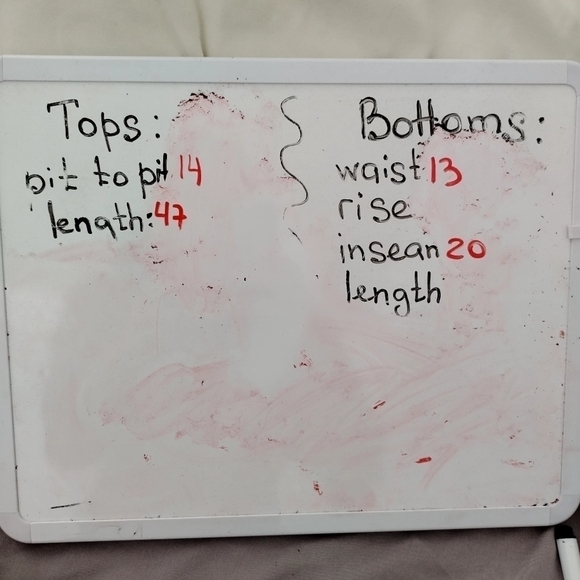 Tops:
pit to pit 14
length: 47
Bottoms:
waist 13
rise
insean 20
length